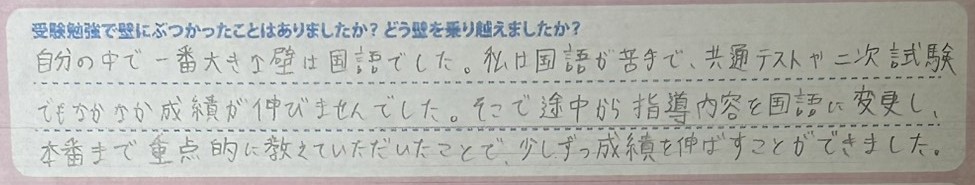 受験勉強で壁にぶつかったことはありましたか？どう壁を乗り越えましたか？
自分の中で一番大きな壁は国語でした。私は国語が苦手で、共通テストや二次試験
でもなかなか成績が伸びませんでした。そこで途中から指導内容を国語に変更し、
本番まで重点的に教えていただいたことで、少しずつ成績を伸ばすことができました。